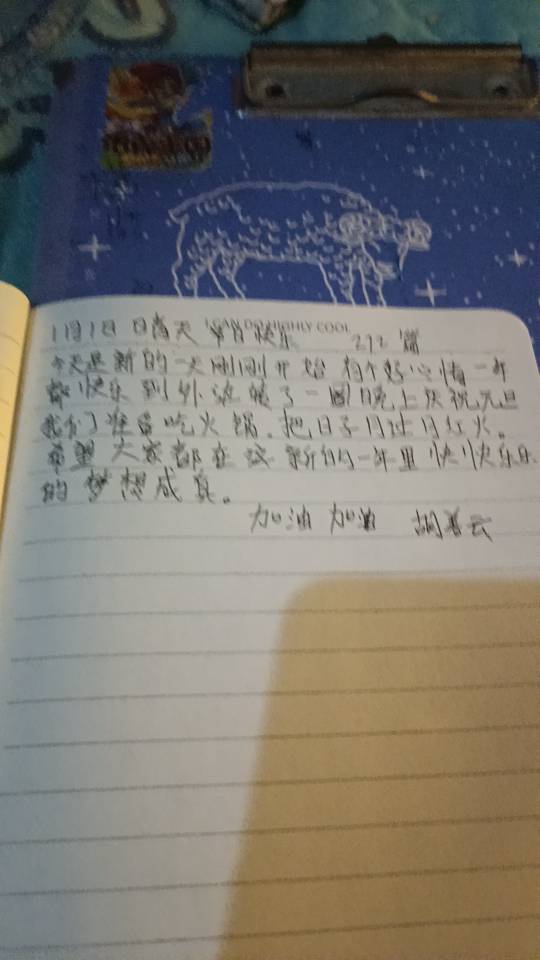 1月1日 日 天 节日快乐 292 篇
今天是新的一天刚刚开始 有个好心情 一年
都快乐 到外边 了一圈 晚上庆祝元旦
我们准备吃火锅.把日子 过 红火。
希望大家都在这新的一年里快快乐乐
的梦想成真。
加油 加油 胡 云